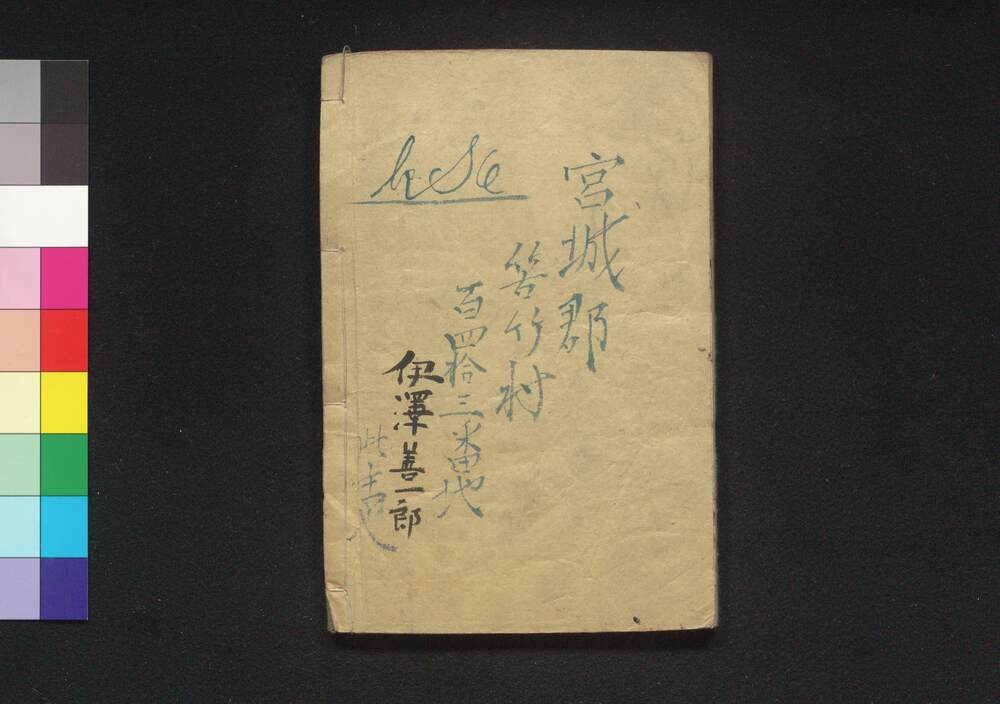 宮城郡
苦竹村
百四拾三番地
伊澤善一郎
此主